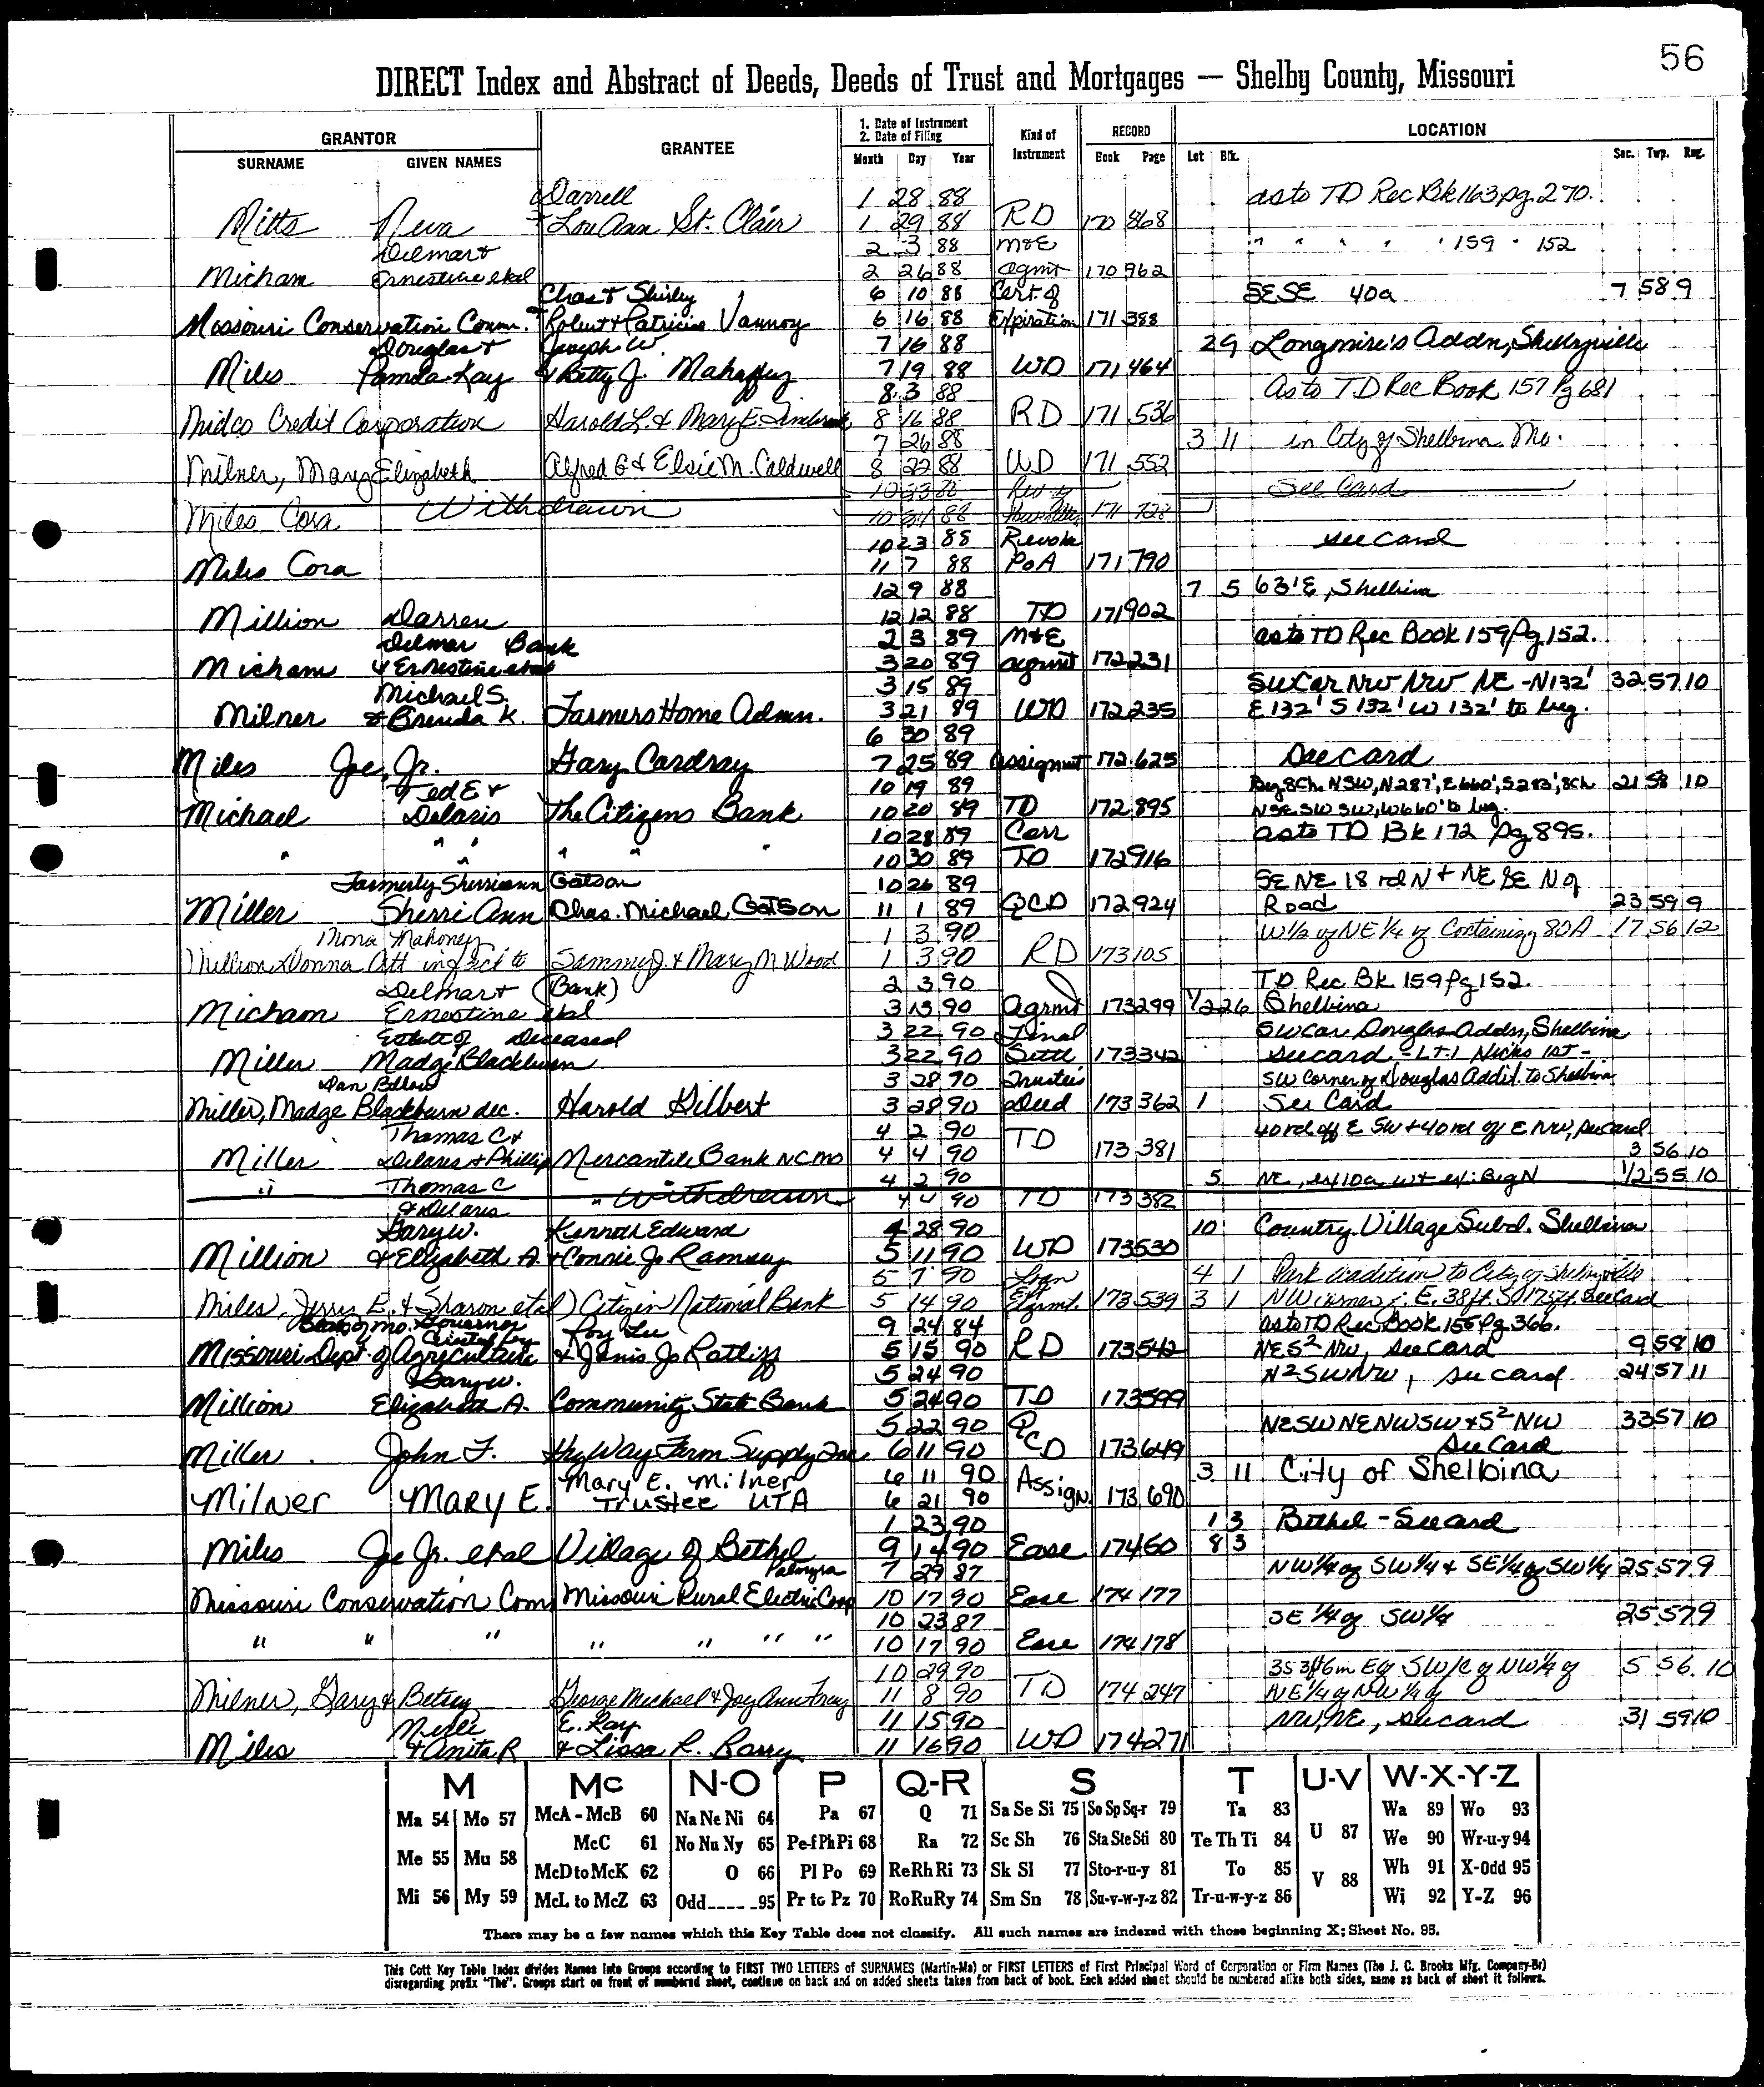 56
DIRECT Index and Abstract of Deeds, Deeds of Trust and Mortgages — Shelby County, Missouri
GRANTOR GRANTEE 1. Date of Instrument 2. Date of Filing Kind of Instrument RECORD LOCATION
SURNAME GIVEN NAMES Month Day Year Book Page Lot Blk. Sec. Twp. Rng.
Darrell 1 28 88 as to TD Rec Bk 163 pg 270.
Mitts Neva + Lou Ann St. Clair 1 29 88 RD 170 868
Delmar + 2 3 88 M&E " " " " " 159 " 152
Micham Ernestine etal 2 26 88 agmt 170 962
Chas + Shirley 6 10 88 Cert. of SESE 40a 7 58 9
Missouri Conservation Comm. Robert + Patricia Vannoy 6 16 88 Expiration 171 388
Douglas + Joseph W. 7 16 88 29 Longmire's Addn, Shelbyville
Miles Pamela Kay & Betty J. Mahaffey 7 19 88 WD 171 464
8 3 88 As to TD Rec Book 157 Pg 681
Midco Credit Corporation Harold L. & Mary E. 8 16 88 RD 171 536
7 26 88 3 11 in City of Shelbina Mo.
Milner, Mary Elizabeth Alfred G & Elsie M. Caldwell 8 22 88 WD 171 552
10 23 88 See Card
Miles Cora Withdrawn 10 24 88 171 728
10 23 88 Revoke see card
Miles Cora 11 7 88 PoA 171 790
12 9 88 7 5 63' E, Shelbina
Million Darren 12 12 88 TD 171 902
Delmar Bank 2 3 89 M&E as to TD Rec Book 159 Pg 152.
Micham & Ernestine etal 3 20 89 agmt 172 231
Michael S. 3 15 89 SW Cor NW NW NE - N 132' 32 57 10
Milner & Brenda K. Farmers Home Admn. 3 21 89 WD 172 235 E 132' S 132' W 132' to beg.
6 30 89
Miles Joe, Jr. Gary Cardray 7 25 89 Assignmt 172 625 See card
Ted E + 10 19 89 Beg 8Ch. NSW, N287', E660', S283', 8Ch 21 58 10
Michael Delaris The Citizens Bank 10 20 89 TD 172 895 NSE SW SW, W660' to beg.
10 28 89 Corr as to TD Bk 172 pg 895.
" " " " " " 10 30 89 TD 172 916
Formerly Sherri Ann Gatson 10 26 89 SE NE 18 rd N + NE SE N of
Miller Sherri Ann Chas. Michael Gatson 11 1 89 QCD 172 924 Road 23 59 9
Mahoney 1 3 90 W1/2 of NE1/4 of Containing 80A 17 56 12
Million Donna Att in fact to Sammy J. & Mary M Wood 1 3 90 RD 173 105
Delmar + (Bank) 2 3 90 TD Rec Bk 159 Pg 152.
Micham Ernestine etal 3 13 90 Agrmt 173 299 1/2 26 Shelbina
Estate of Deceased 3 22 90 Final SW Cor Douglas Addn, Shelbina
Miller Madge Blackburn 3 22 90 Settl 173 342 see card - Lt 1 Nicks 1st -
3 28 90 Trustees SW Corner of Douglas Addit. to Shelbina
Miller, Madge Blackburn dec. Harold Gilbert 3 28 90 Deed 173 362 1 See Card
Thomas C + 4 2 90 TD 40 rd off E SW + 40 rd off E NW, see card
Miller Delares + Phillip Mercantile Bank NCMO 4 4 90 173 381 3 56 10
" Thomas C 4 2 90 5 NE, ex 10a w + ex: Beg N 1/2 55 10
& Delaris " Withdrawn 4 4 90 TD 173 382
Gary W. Kenneth Edward 4 28 90 10 Country Village Subd. Shelbina
Million & Elizabeth A. + Connie Jo Ramsey 5 11 90 WD 173 530
5 7 90 Loan 4 1 Park Addition to City of Shelbyville
Miles, Jerry E. & Sharon etal) Citizen National Bank 5 14 90 173 539 3 1 NW corner E. 38ft. S See Card
of Mo. Governor Roy Lee 9 24 84 as to TD Rec Book 155 Pg 366.
Missouri Dept. of Agriculture & Janis Jo Ratliff 5 15 90 RD 173 542 NE S² NW, see card 9 58 10
Gary W. 5 24 90 N² SW NW, see card 24 57 11
Million Elizabeth A. Community State Bank 5 24 90 TD 173 599
5 22 90 NE SW NE NW SW + S² NW 33 57 10
Miller John F. Hy Way Farm Supply Inc 6 11 90 QCD 173 649 see card
Mary E. Milner 6 11 90 3 11 City of Shelbina
Milner MARY E. Trustee UTA 6 21 90 Assign. 173 690
1 23 90 1 3 Bethel - See card
Miles Joe Jr. etal Village of Bethel 9 14 90 Ease 174 60 8 3
Palmyra 7 29 87 NW1/4 of SW1/4 & SE1/4 of SW1/4 25 57 9
Missouri Conservation Com Missouri Rural Electric Coop 10 17 90 Ease 174 177
10 23 87 SE 1/4 of SW1/4 25 57 9
" " " " " " " 10 17 90 Ease 174 178
10 29 90 E of SW/C of NW1/4 of 5 56 10
Milner, Gary & Betsey George Michael & Joy Ann Frey 11 8 90 TD 174 247 NE1/4 of NW1/4 of
E. Ray 11 15 90 NW, NE, see card 31 59 10
Miles + Anita R & Lissa R. Barry 11 16 90 WD 174 271
M Mc N-O P Q-R S T U-V W-X-Y-Z
Ma 54 Mo 57 McA - McB 60 Na Ne Ni 64 Pa 67 Q 71 Sa Se Si 75 So Sp Sq-r 79 Ta 83 U 87 Wa 89 Wo 93
Me 55 Mu 58 McC 61 No Nu Ny 65 Pe-f Ph Pi 68 Ra 72 Sc Sh 76 Sta Ste Sti 80 Te Th Ti 84 We 90 Wr-u-y 94
McD to McK 62 O 66 Pl Po 69 Re Rh Ri 73 Sk Sl 77 Sto-r-u-y 81 To 85 V 88 Wh 91 X-Odd 95
Mi 56 My 59 McL to McZ 63 Odd 95 Pr to Pz 70 Ro Ru Ry 74 Sm Sn 78 Su-v-w-y-z 82 Tr-u-w-y-z 86 Wi 92 Y-Z 96
There may be a few names which this Key Table does not classify. All such names are indexed with those beginning X; Sheet No. 95.
This Cott Key Table Index divides Names Into Groups according to FIRST TWO LETTERS of SURNAMES (Martin-Ma) or FIRST LETTERS of First Principal Word of Corporation or Firm Names (The J. C. Brooks Mfg. Company-Br)
disregarding prefix "The". Groups start on front of numbered sheet, continue on back and on added sheets taken from back of book. Each added sheet should be numbered alike both sides, same as back of sheet it follows.